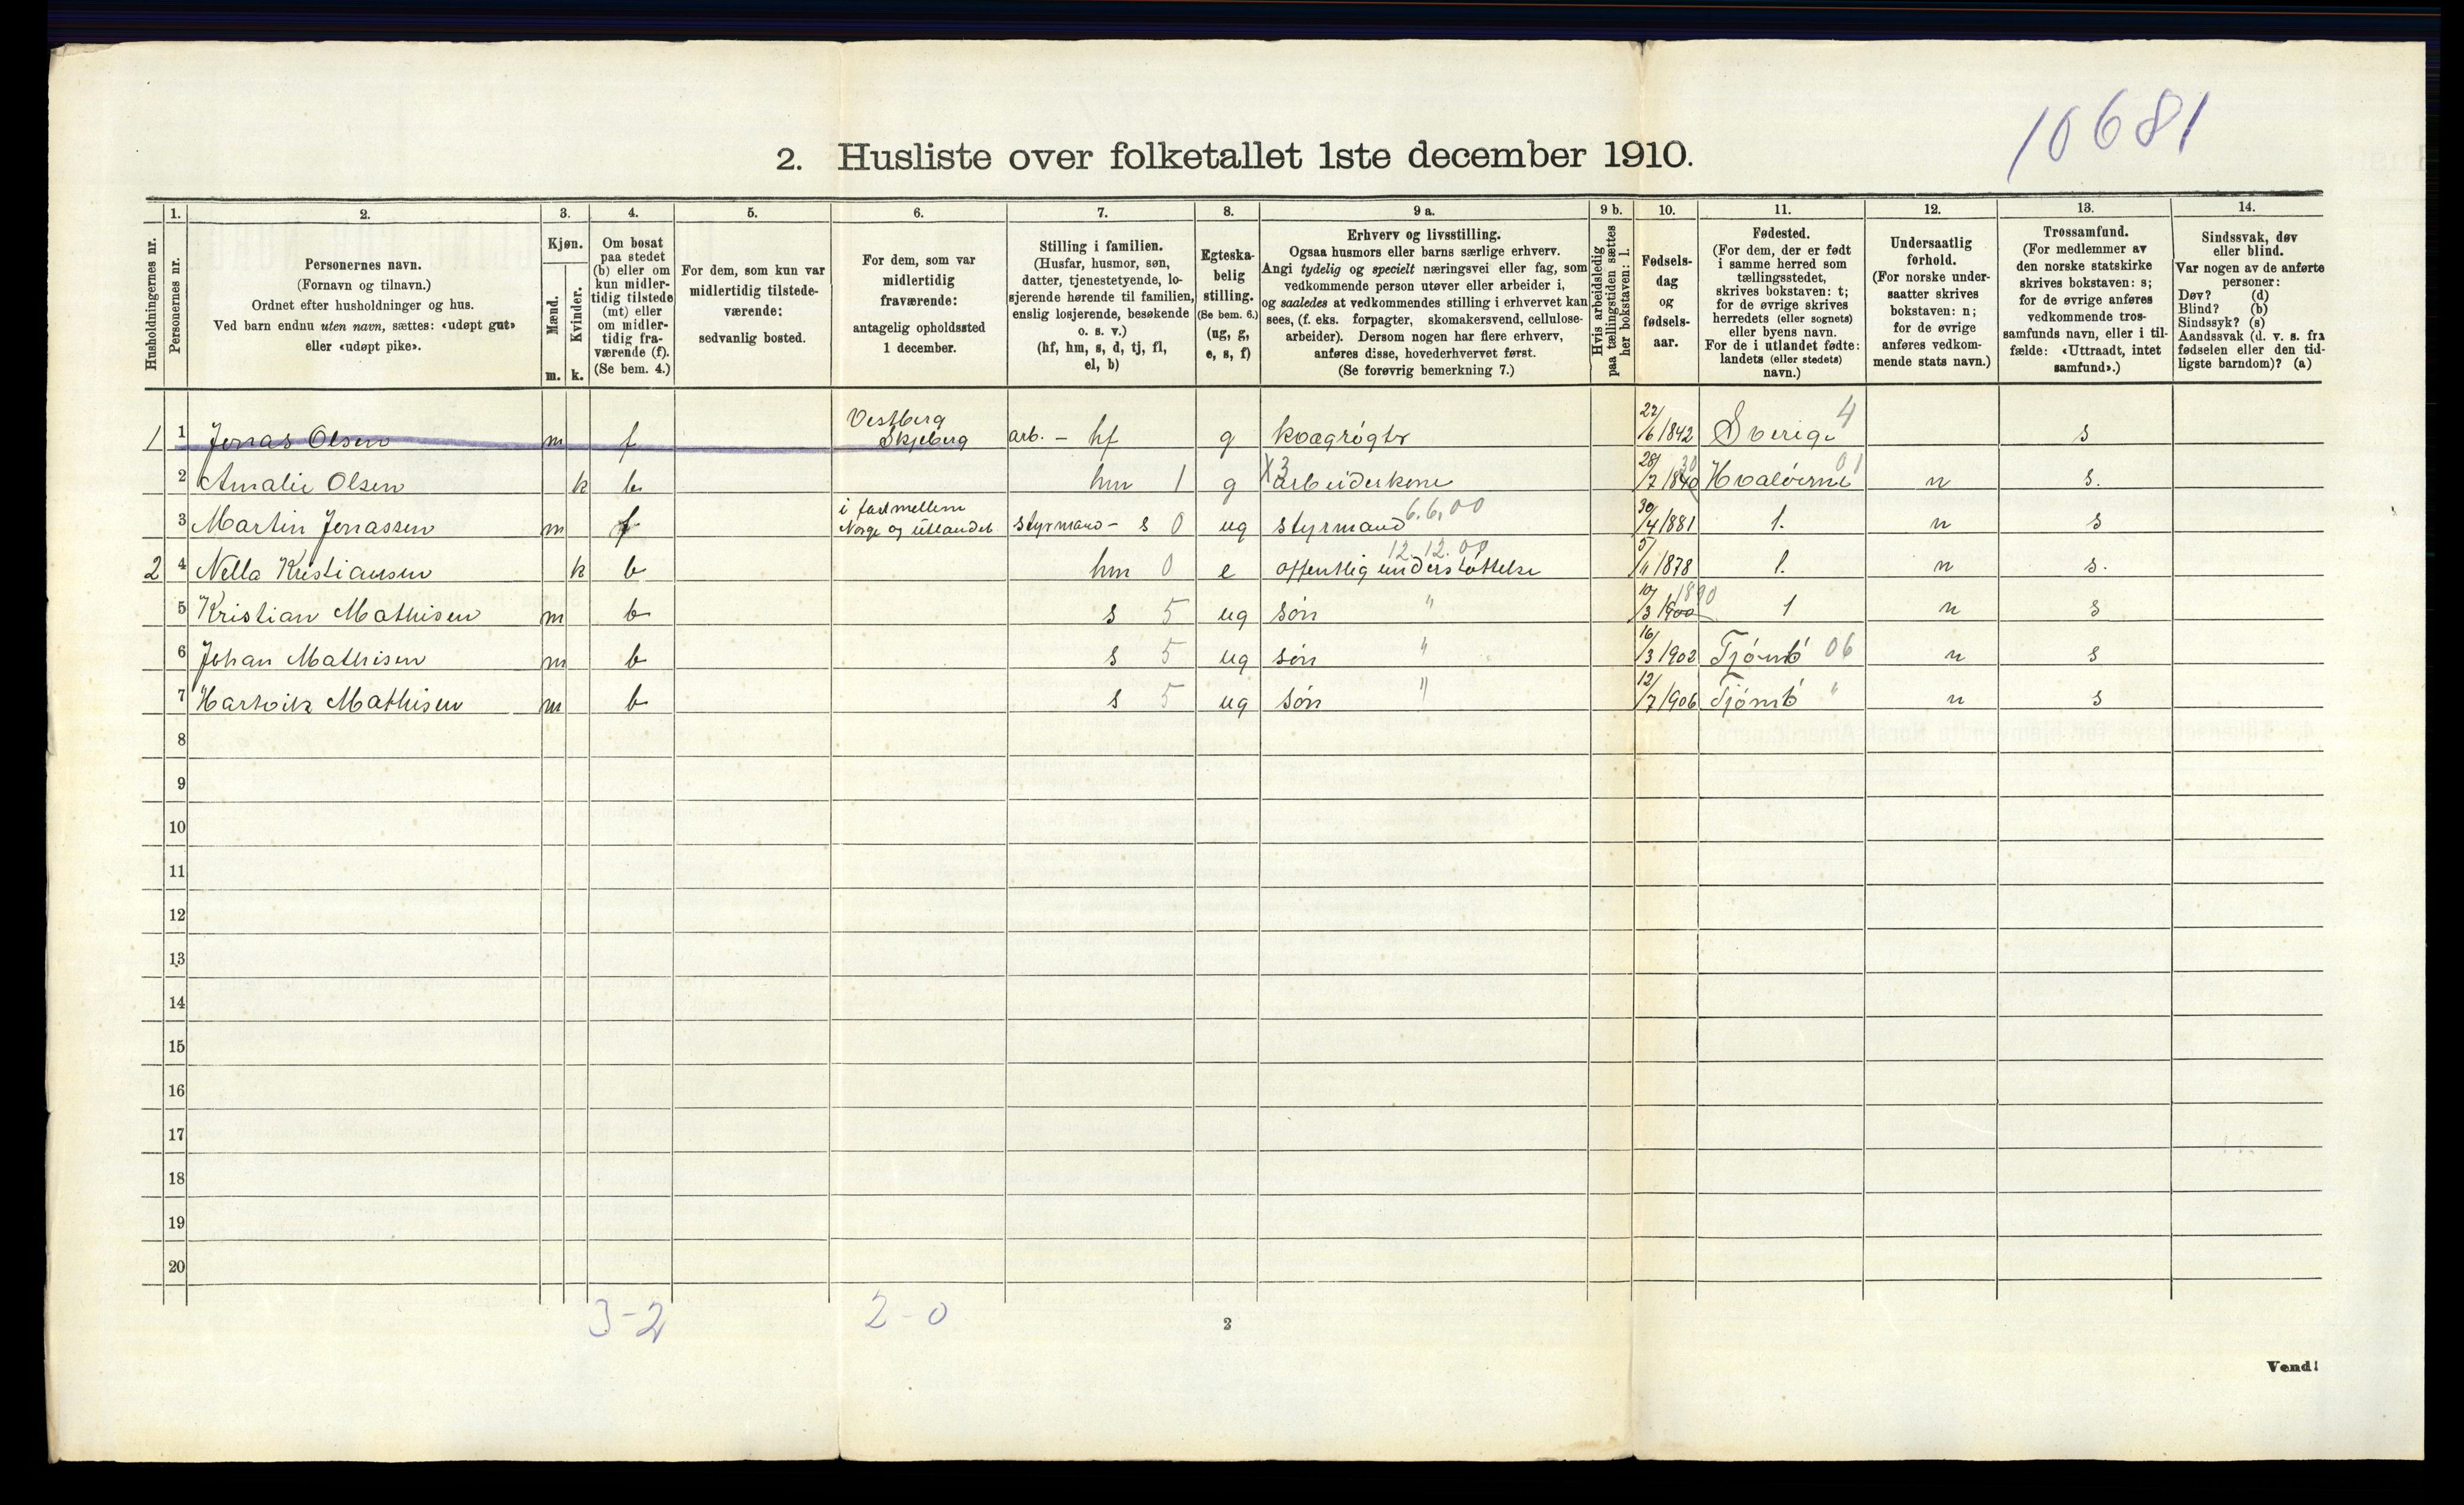 10681
2. Husliste over folketallet 1ste december 1910.
1. 2. 3. 4. 5. 6. 7. 8. 9 a. 9 b. 10. 11. 12. 13. 14.
Husholdningernes nr.
Personernes nr.
Personernes navn.
(Fornavn og tilnavn.)
Ordnet efter husholdninger og hus.
Ved barn endnu uten navn, sættes: «udøpt gut»
eller «udøpt pike».
Kjøn.
Mænd.
Kvinder.
m. k.
Om bosat
paa stedet
(b) eller om
kun midler-
tidig tilstede
(mt) eller
om midler-
tidig fra-
værende (f).
(Se bem. 4.)
For dem, som kun var
midlertidig tilstede-
værende:
sedvanlig bosted.
For dem, som var
midlertidig
fraværende:
antagelig opholdssted
1 december.
Stilling i familien.
(Husfar, husmor, søn,
datter, tjenestetyende, lo-
sjerende hørende til familien,
enslig losjerende, besøkende
o. s. v.)
(hf, hm, s, d, tj, fl,
el, b)
Egteska-
belig
stilling.
(Se bem. 6.)
(ug, g,
e, s, f)
Erhverv og livsstilling.
Ogsaa husmors eller barns særlige erhverv.
Angi tydelig og specielt næringsvei eller fag, som
vedkommende person utøver eller arbeider i,
og saaledes at vedkommendes stilling i erhvervet kan
sees, (f. eks. forpagter, skomakersvend, cellulose-
arbeider). Dersom nogen har flere erhverv,
anføres disse, hovederhvervet først.
(Se forøvrig bemerkning 7.)
Hvis arbeidsledig
paa tællingstiden sættes
her bokstaven: l.
Fødsels-
dag
og
fødsels-
aar.
Fødested.
(For dem, der er født
i samme herred som
tællingsstedet,
skrives bokstaven: t;
for de øvrige skrives
herredets (eller sognets)
eller byens navn.
For de i utlandet fødte:
landets (eller stedets)
navn.)
Undersaatlig
forhold.
(For norske under-
saatter skrives
bokstaven: n;
for de øvrige
anføres vedkom-
mende stats navn.)
Trossamfund.
(For medlemmer av
den norske statskirke
skrives bokstaven: s;
for de øvrige anføres
vedkommende tros-
samfunds navn, eller i til-
fælde: «Uttraadt, intet
samfund».)
Sindssvak, døv
eller blind.
Var nogen av de anførte
personer:
Døv? (d)
Blind? (b)
Sindssyk? (s)
Aandssvak (d. v. s. fra
fødselen eller den tid-
ligste barndom)? (a)
1 1 Jonas Olsen m f Vestberg Skjeberg arb. - hf g kvægrögter 22/6 1842 Sverige 4 s
2 Amalie Olsen k b hm 1 g X3 arbeiderkone 28/2 1840 30 Hvalöerne 01 n s.
3 Martin Jonassen m f i fart mellem Norge og utlandet styrmand - s 0 ug styrmand 6.6,00 30/4 1881 t. n s
2 4 Nella Kristiansen k b hm 0 e offentlig understöttelse 12.12.00 5/11 1878 t. n s.
5 Kristian Mathisen m b s 5 ug sön " 10/3 1900 1890 t n s
6 Johan Mathisen m b s 5 ug sön " 16/3 1902 Tjömö 06 n s
7 Hartvik Mathisen m b s 5 ug sön " 12/7 1906 Tjömö " n s
8
9
10
11
12
13
14
15
16
17
18
19
20
3-2 2-0
2
Vend!